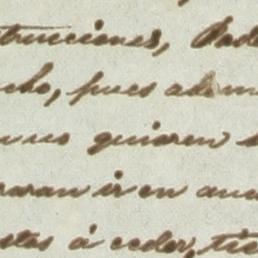 trucciones, Pode
cho, pues adem
uno quieren
raran ir en auc
stas á ceder, tie